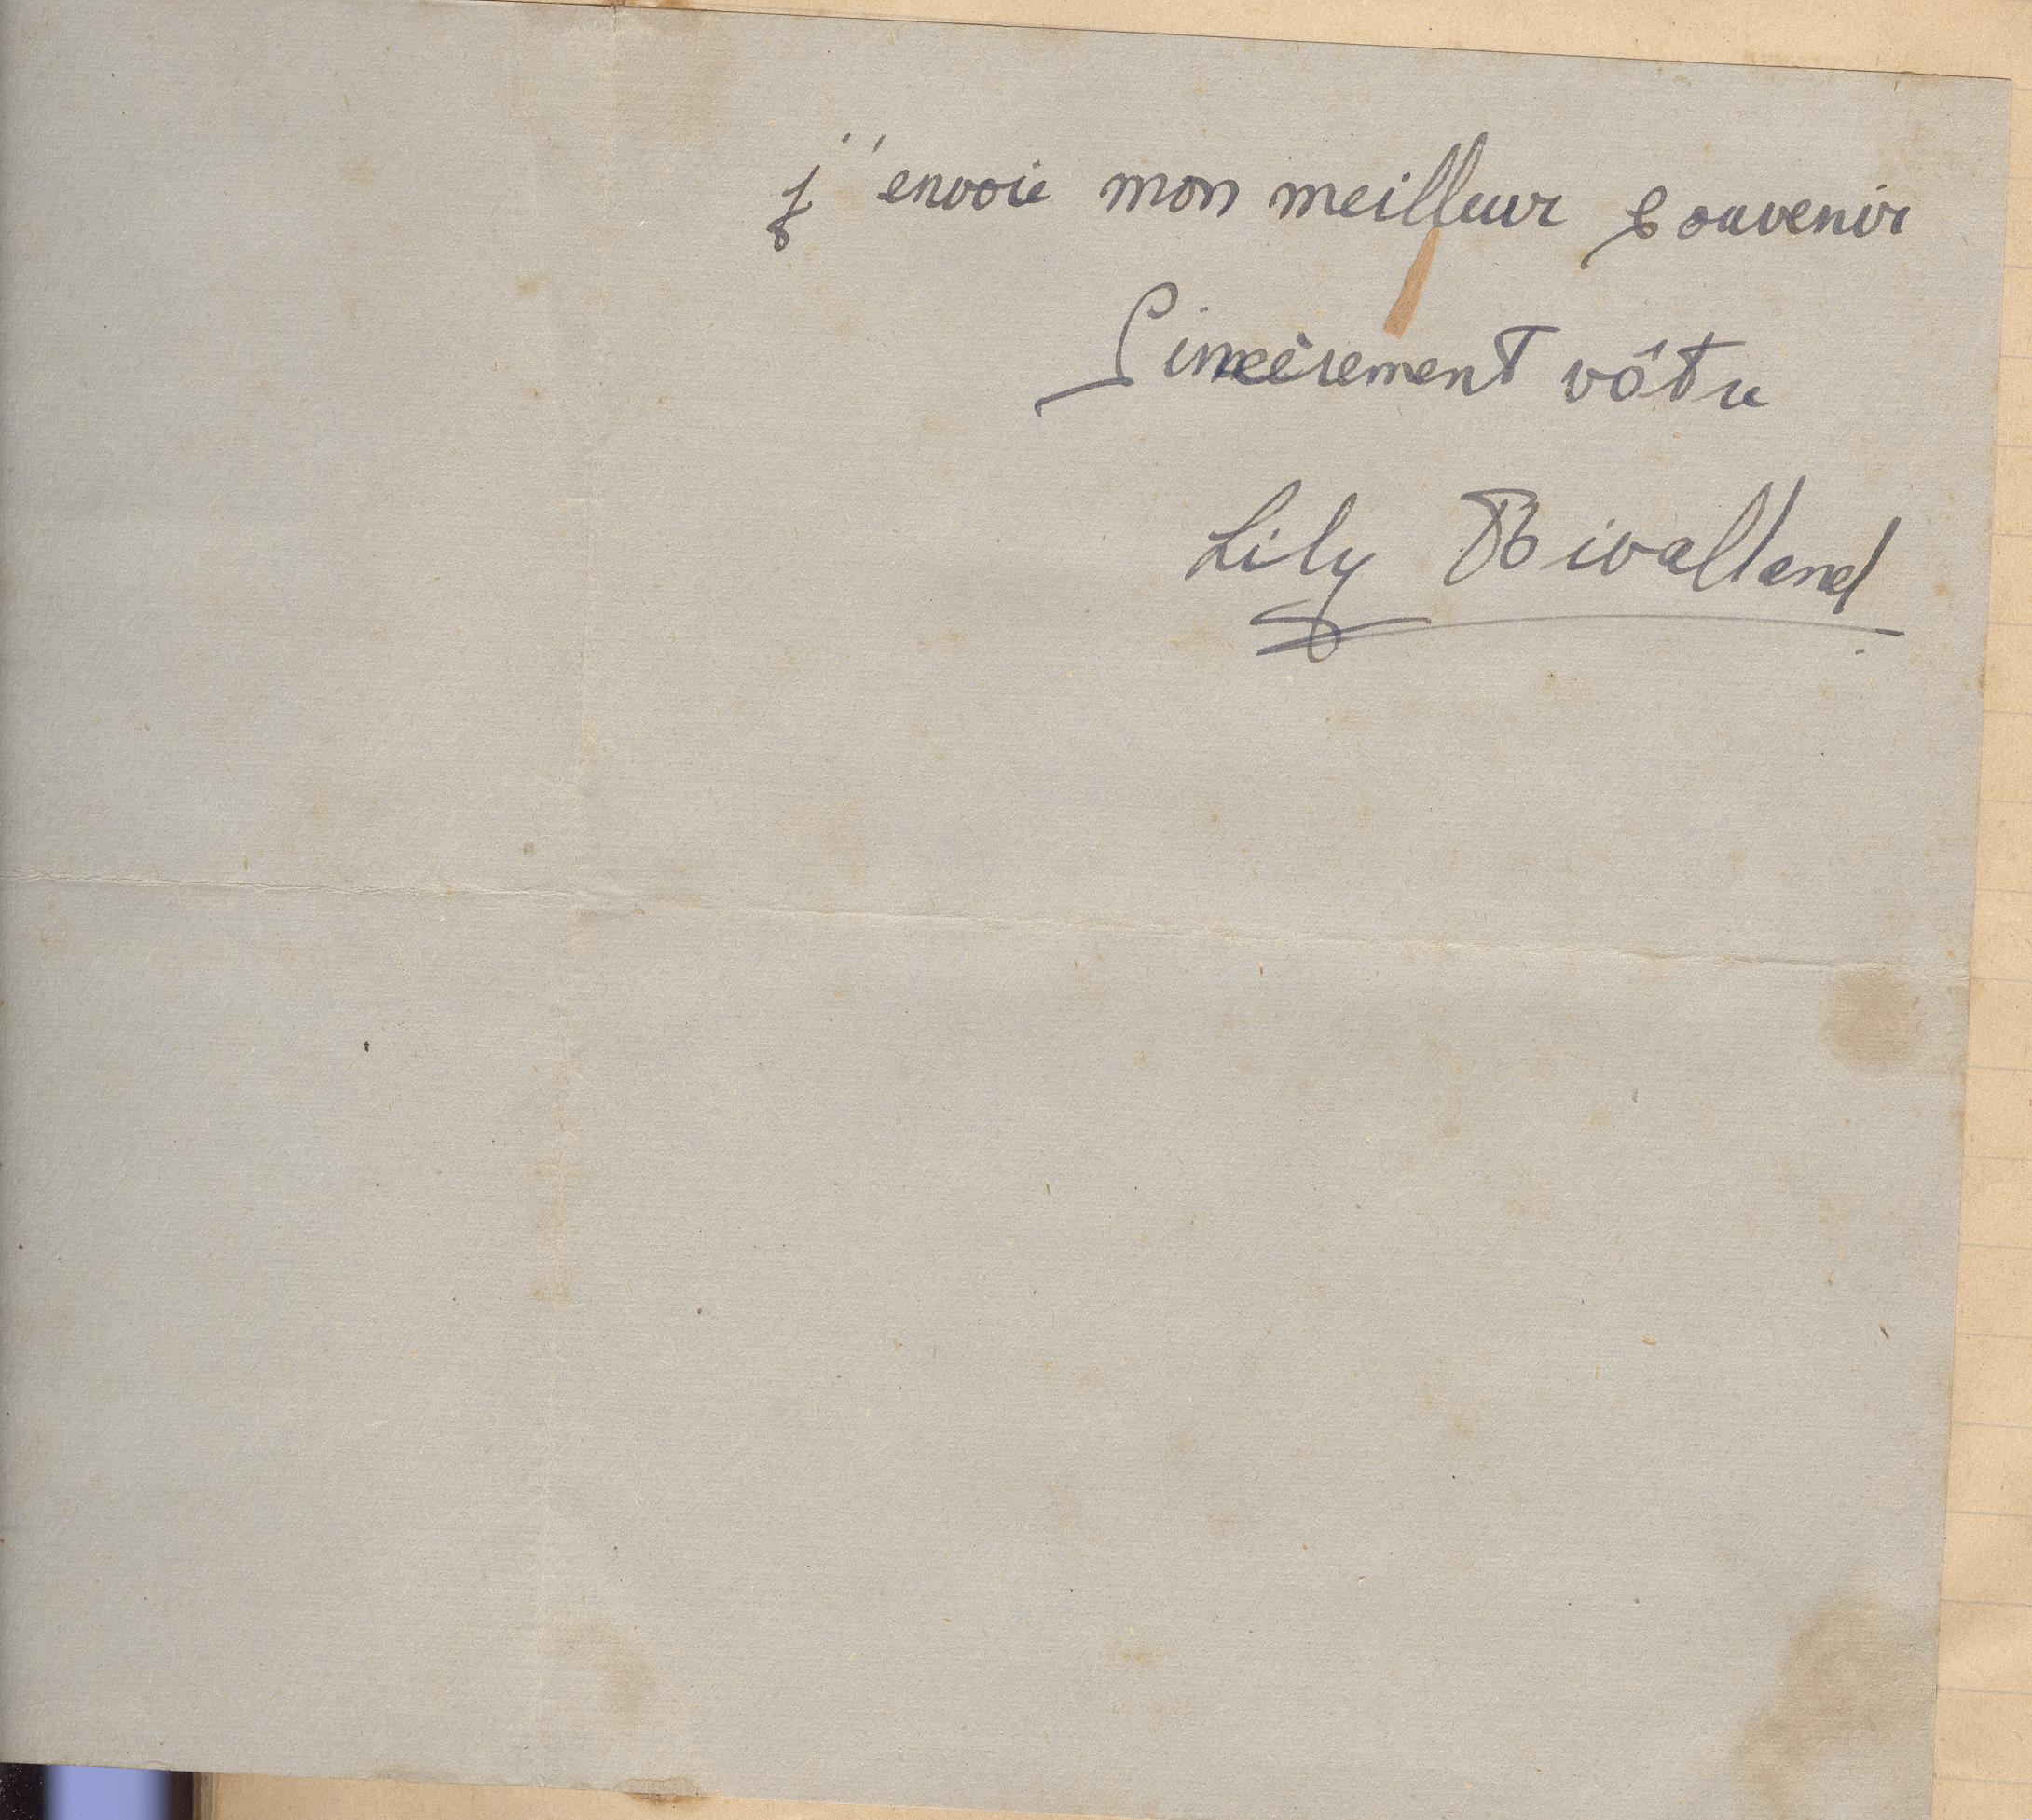 j'envoie mon meilleur souvenir
Sincèrement vôtre
Lily Rivalland